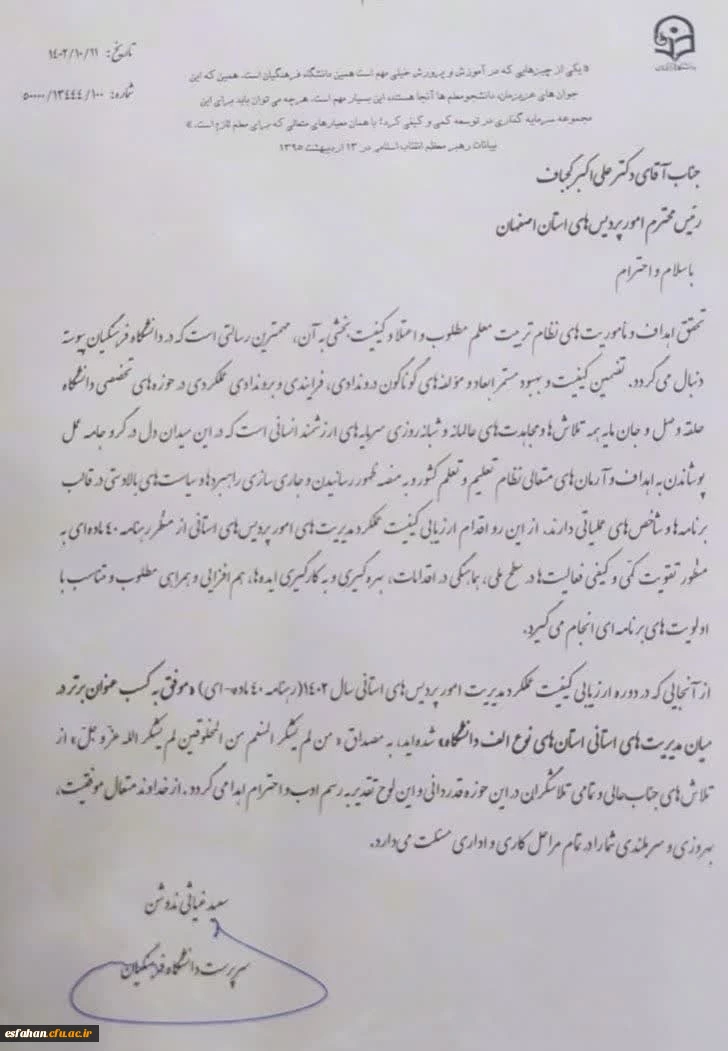 تاریخ: ۱۴۰۲/۱۰/۱۱
شماره: ۵۰۰۰۰/۱۳۴۴۴/۱۰۰
«یکی از چیزهایی که در آموزش و پرورش خیلی مهم است همین دانشگاه فرهنگیان است. همین که این
جوان های عزیزمان، دانشجومعلم ها آنجا هستند، این بسیار مهم است. هرچه می توان باید برای این
مجموعه سرمایه گذاری در توسعه کمی و کیفی کرد؛ با همان معیارهای متعالی که برای معلم لازم است.»
بیانات رهبر معظم انقلاب اسلامی در ۱۳ اردیبهشت ۱۳۹۵
جناب آقای دکتر علی اکبر کجباف
رئیس محترم امور پردیس های استان اصفهان
با سلام و احترام
تحقق اهداف و ماموریت های نظام تربیت معلم مطلوب و اعتلا و کیفیت بخشی به آن، مهمترین رسالتی است که در دانشگاه فرهنگیان پیوسته
دنبال می گردد. تضمین کیفیت و بهبود مستمر ابعاد و مؤلفه های گوناگون دروندادی، فرایندی و بروندادی عملکردی در حوزه های تخصصی دانشگاه
حلقه وصل و جان مایه همه تلاش ها و مجاهدت های عالمانه و شبانه روزی سرمایه های ارزشمند انسانی است که در این میدان دل در گرو جامه عمل
پوشاندن به اهداف و آرمان های متعالی نظام تعلیم و تعلم کشور و به منصه ظهور رسانیدن و جاری سازی راهبردها و سیاست های بالادستی در قالب
برنامه ها و شاخص های عملیاتی دارند. از این رو اقدام ارزیابی کیفیت عملکرد مدیریت های امور پردیس های استانی از منظر رهنامه ۴۰ ماده ای به
منظور تقویت کمی و کیفی فعالیت ها در سطح ملی، هماهنگی در اقدامات، بهره گیری و به کارگیری ایده ها، هم افزایی و همراهی مطلوب و متناسب با
اولویت های برنامه ای انجام می گیرد.
از آنجایی که در دوره ارزیابی کیفیت عملکرد مدیریت امور پردیس های استانی سال ۱۴۰۲(رهنامه ۴۰ ماده-ای) «موفق به کسب عنوان برتر در
میان مدیریت های استانی استان های نوع الف دانشگاه» شده اید، به مصداق « من لم یشکر المنعم من المخلوقین لم یشکر الله عزّوجلّ» از
تلاش های جناب عالی و تمامی تلاشگران در این حوزه قدردانی و این لوح تقدیر به رسم ادب و احترام اهدا می گردد. از خداوند متعال موفقیت،
بهروزی و سربلندی شما را در تمام مراحل کاری و اداری مسئلت می دارد.
سعید غیاثی ندوشن
سرپرست دانشگاه فرهنگیان
esfahan.cfu.ac.ir